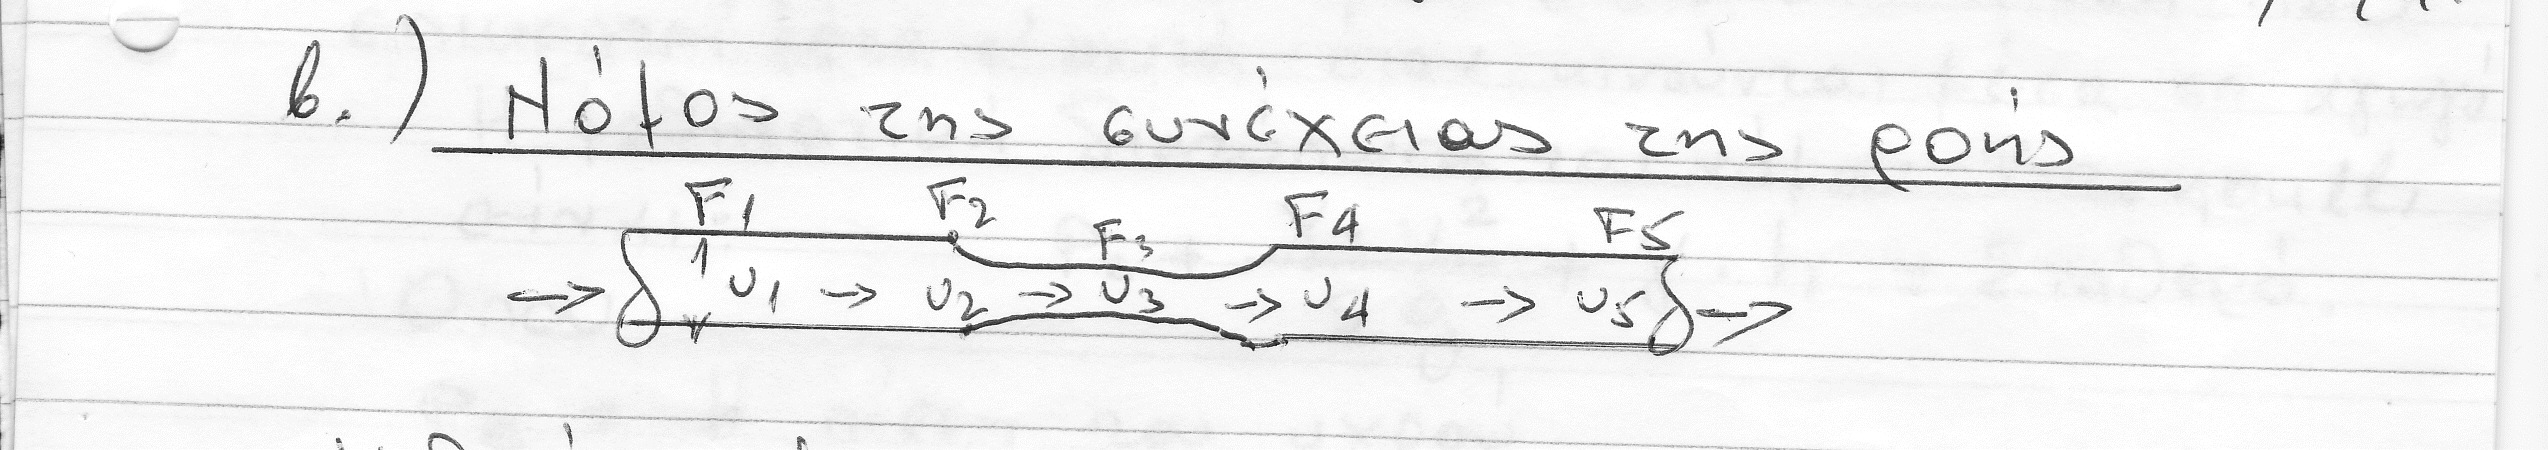 β.) Νόμος της συνέχειας της ροής
F1 F2 F3 F4 F5
→ υ1 → υ2 → υ3 → υ4 → υ5 →